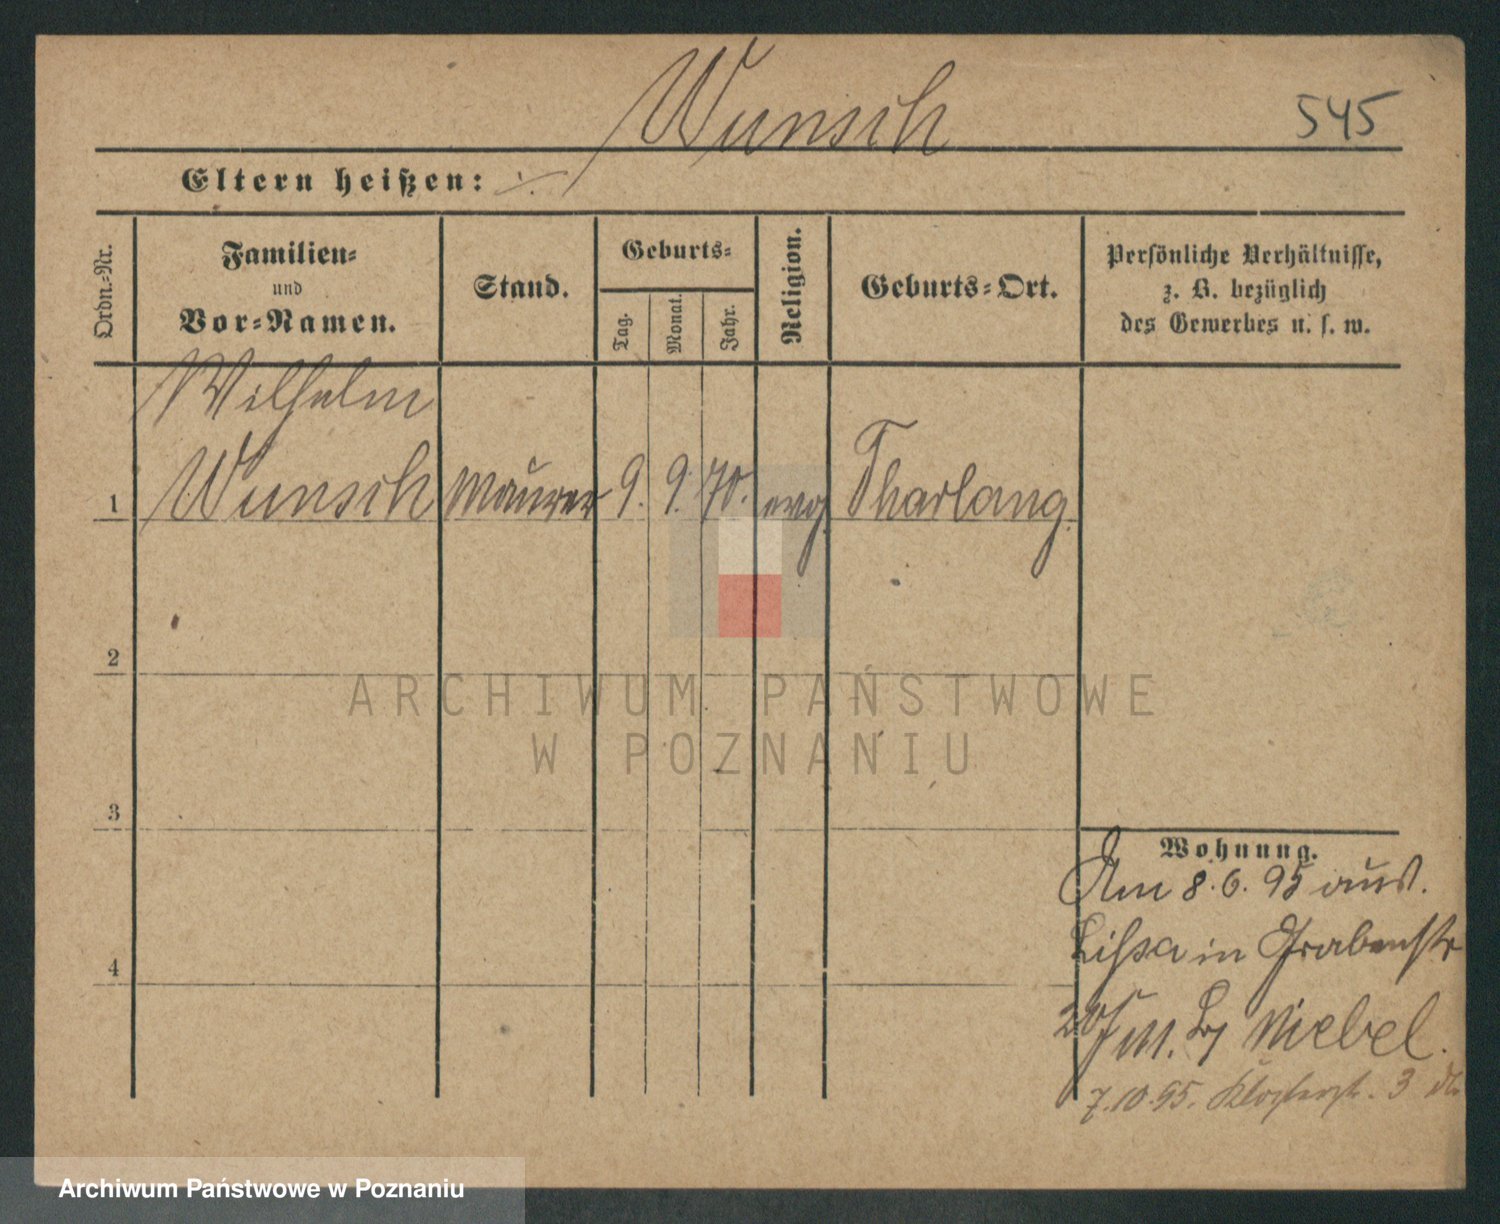 Wunsch
545
Eltern heißen: ·/.
Ordn.-Nr.
Familien-
und
Vor-Namen.
Stand.
Geburts-
Tag.
Monat.
Jahr.
Religion.
Geburts-Ort.
Persönliche Verhältnisse,
z. B. bezüglich
des Gewerbes u. s. w.
Wilhelm
1 Wunsch Maurer 9. 9. 70. evg. Tharlang.
2
3
4
Wohnung.
Am 8.6.95 aus.
Lissa in Grabenstr
20 b/ Niebel.
7.10.95. Klosterstr. 3
ARCHIWUM PAŃSTWOWE
W POZNANIU
Archiwum Państwowe w Poznaniu